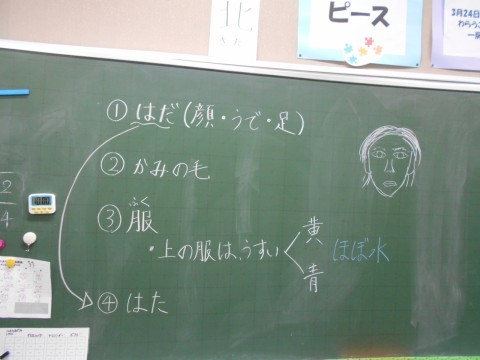 北
きた
ピース
3月24日
わらう
一
①はだ(顔・うで・足)
②かみの毛
ふく
③服
・上の服は、うすい 黄 ほぼ水
青
④はた
2
4